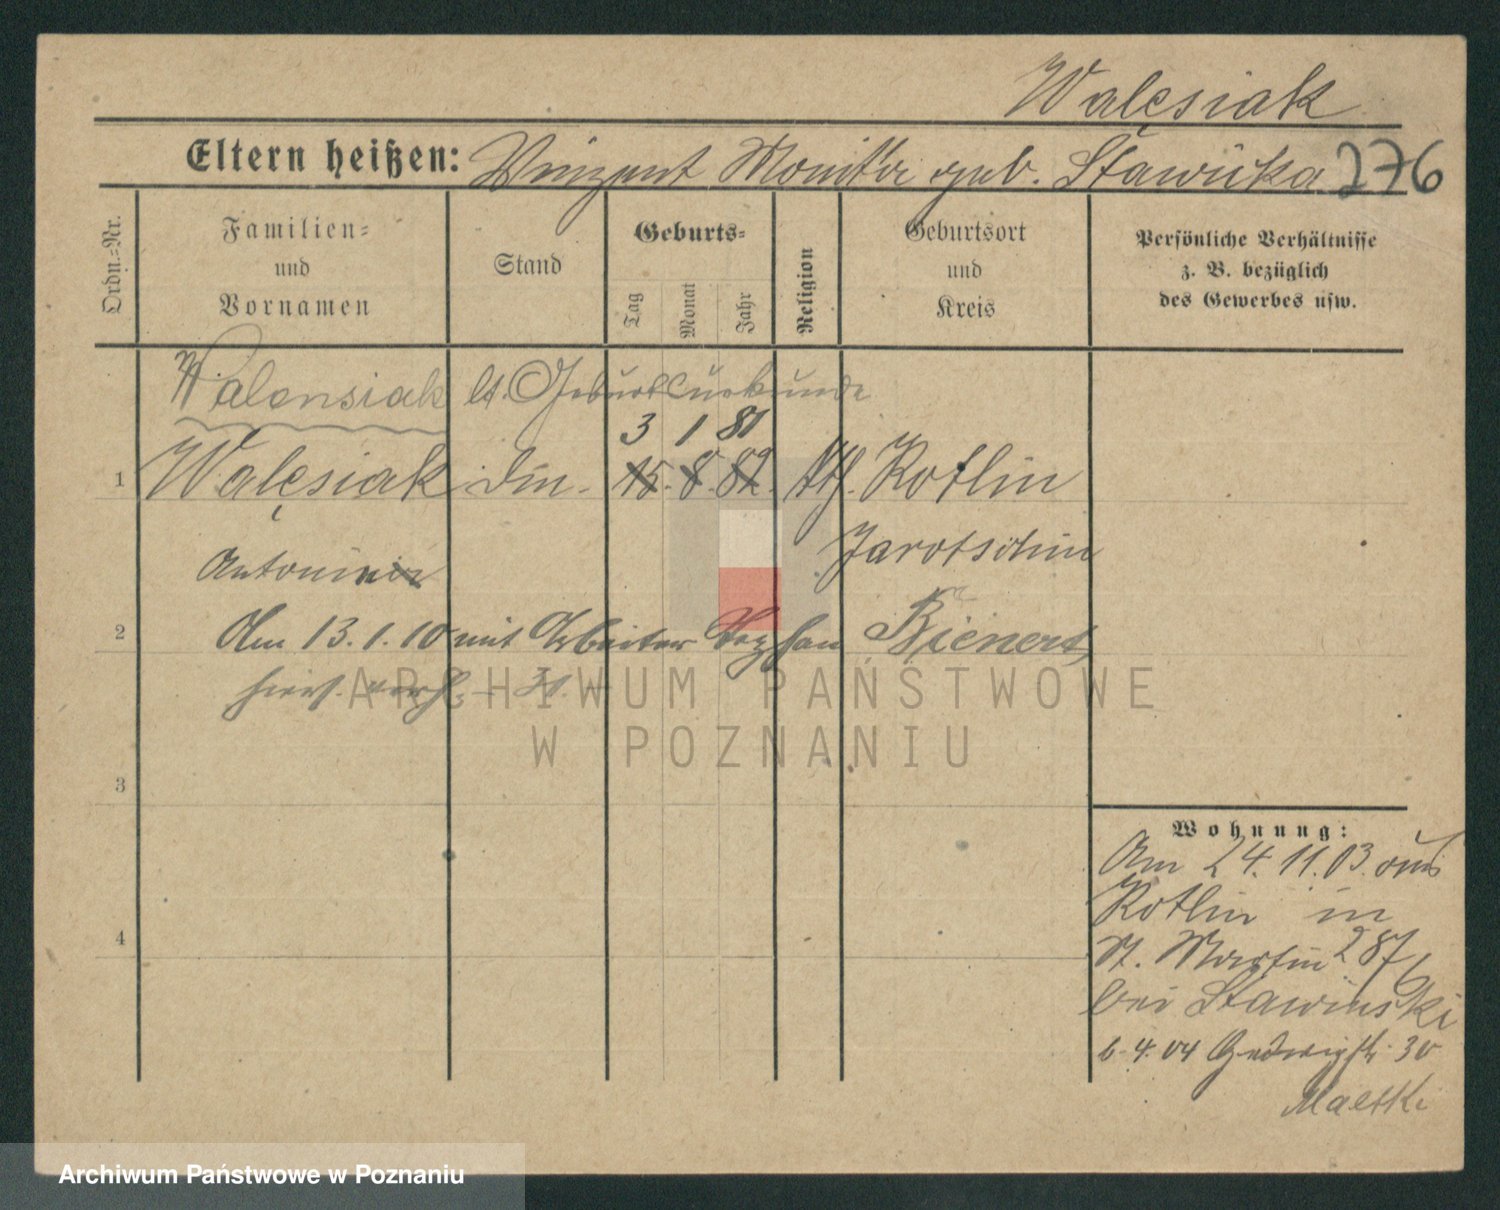 Walęsiak
Eltern heißen: Vinzent Monika geb. Stawicka 276
Ordn.-Nr.
Familien-
und
Vornamen
Stand
Geburts-
Tag
Monat
Jahr
Religion
Geburtsort
und
Kreis
Persönliche Verhältnisse
z. B. bezüglich
des Gewerbes usw.
Walensiak lt. Geburtsurkunde
3 1 81
1 Walęsiak 15. 8. 82. kth. Kotlin
Jarotschin
Antonine
2 Am 13.1.10 mit Arbeiter Stephan Bienert
hiers. verh.
3
4
Wohnung:
Am 24.11.03. aus
Kotlin in
St. Martin 287
bei Stawinski
6.4.04 Hedwigstr. 30
ARCHIWUM PAŃSTWOWE
W POZNANIU
Archiwum Państwowe w Poznaniu